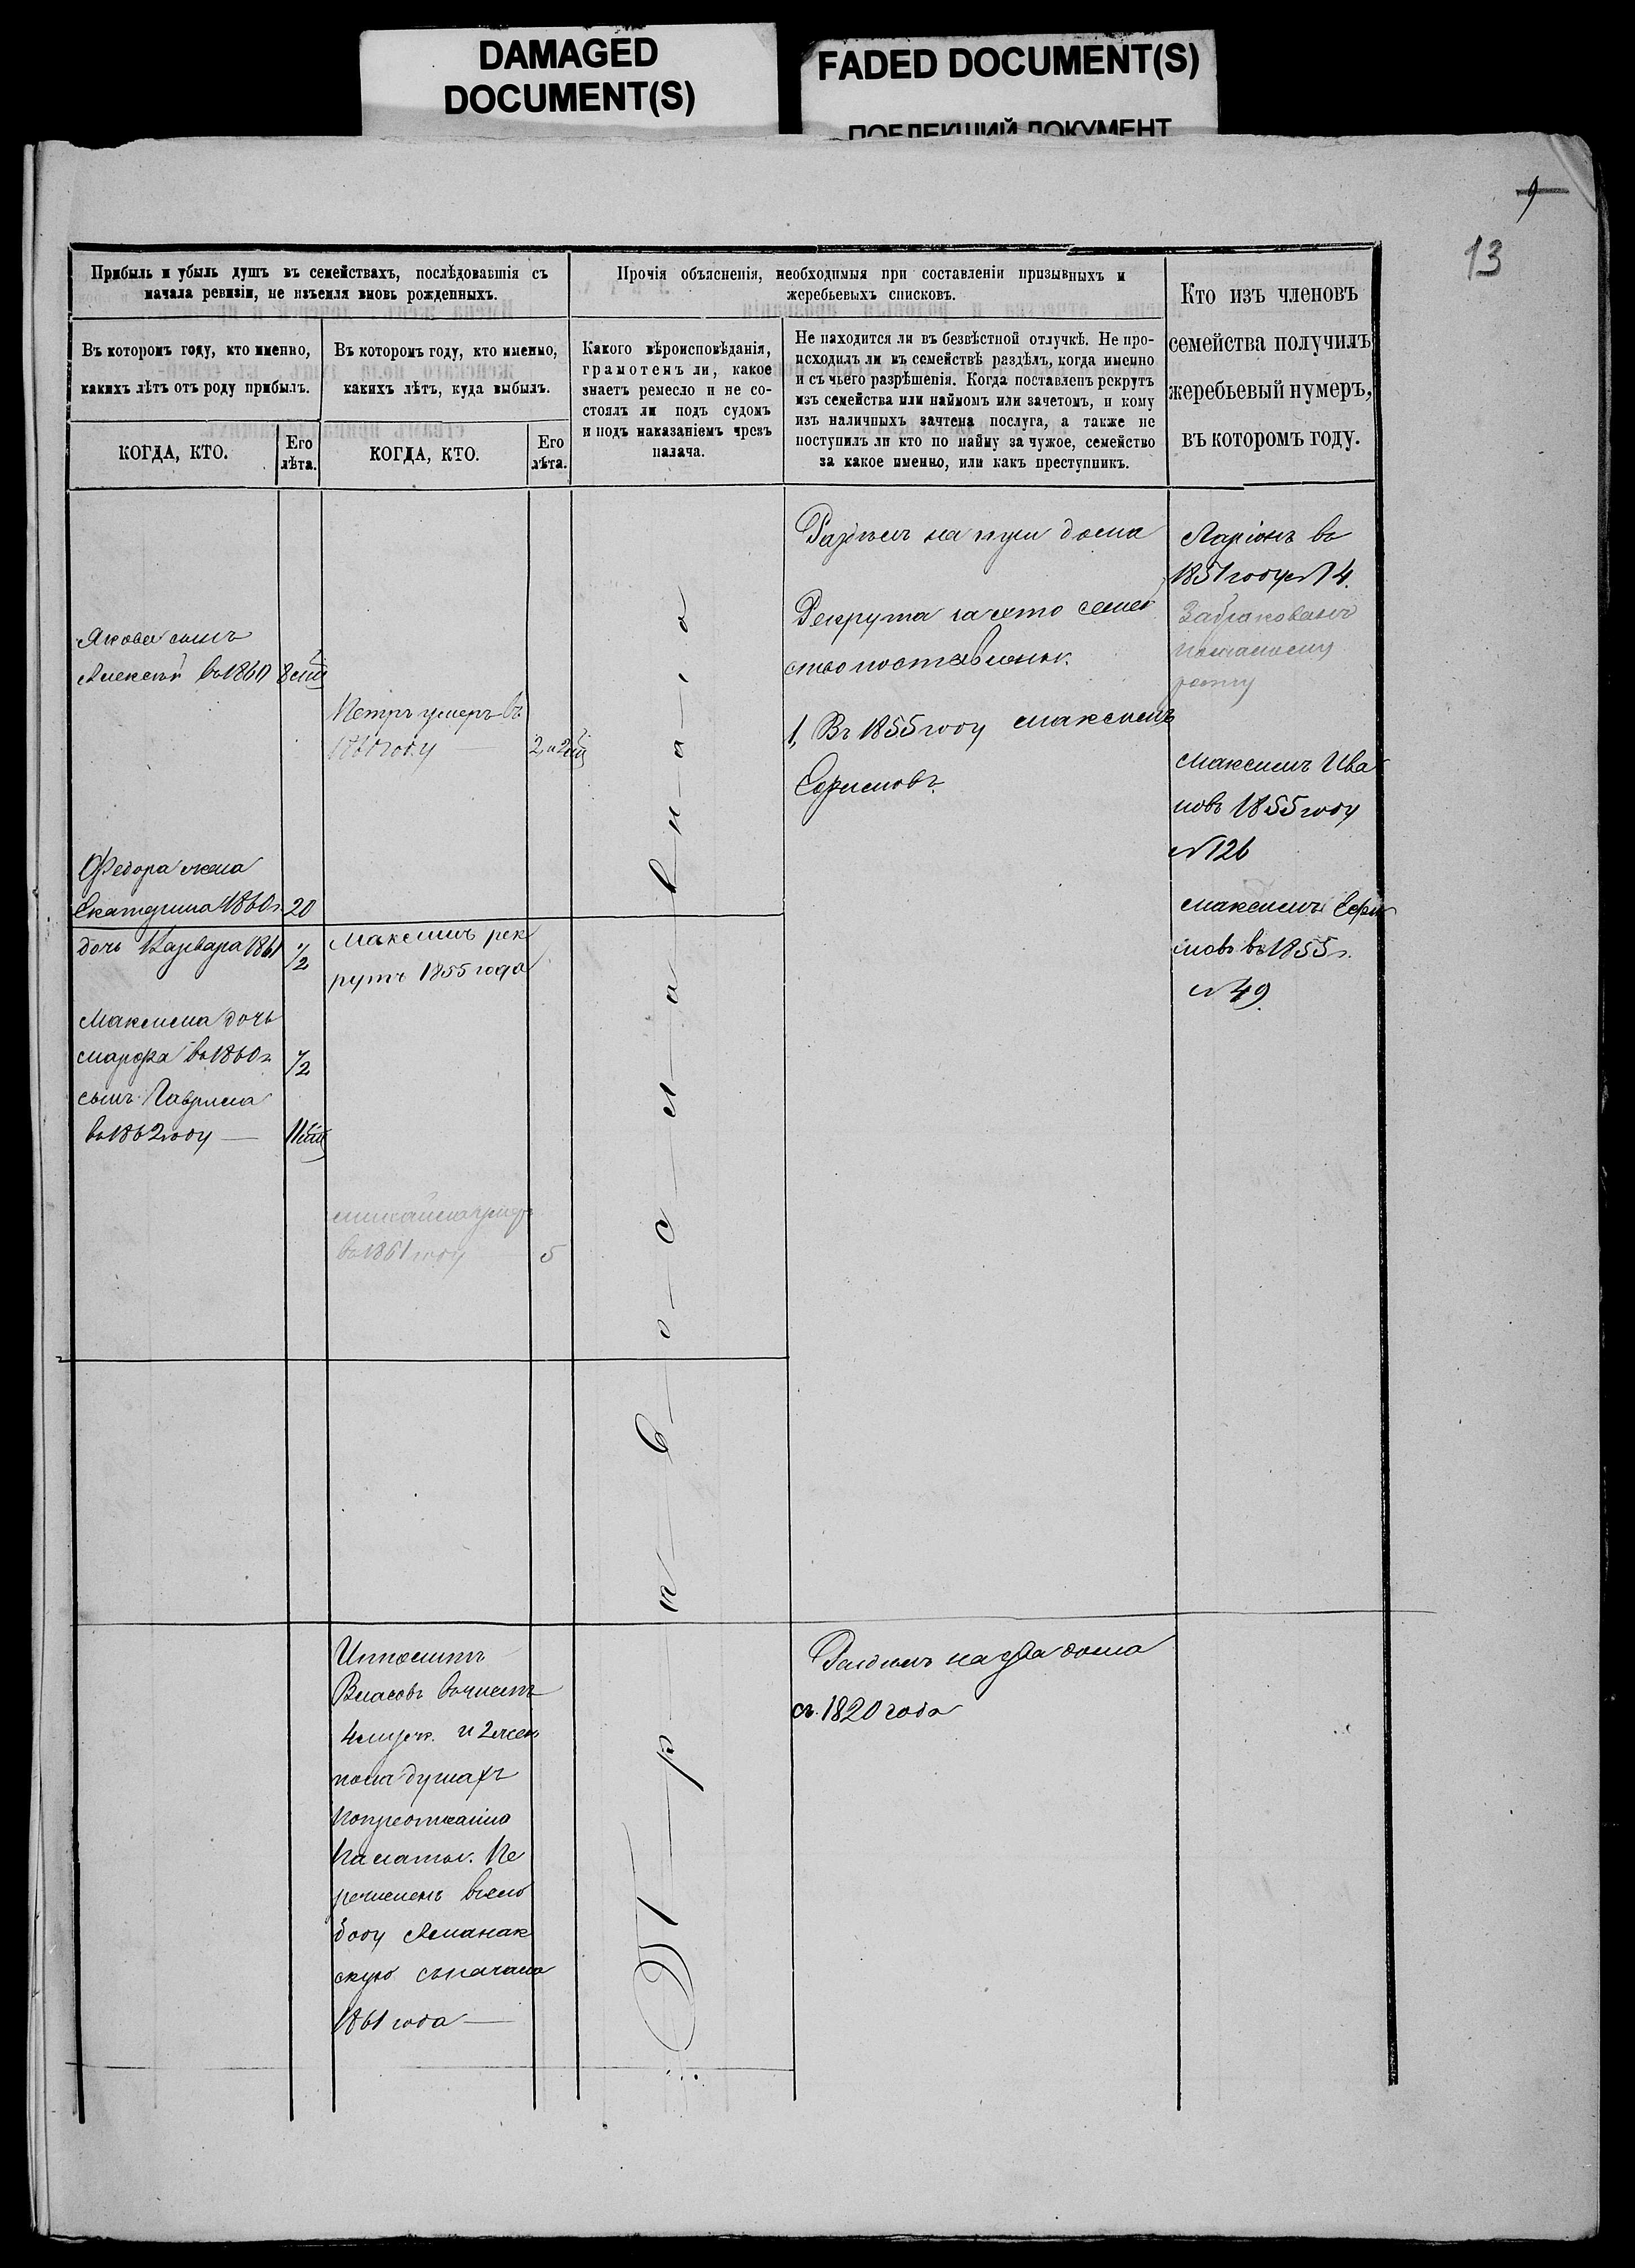 DAMAGED
DOCUMENT(S)
FADED DOCUMENT(S)
ПОБЛЕКШИЙ ДОКУМЕНТ
9
13
Прибыль и убыль душъ въ семействахъ, послѣдовавшія съ
начала ревизіи, не изъемля вновь рожденныхъ.
Въ которомъ году, кто именно,
какихъ лѣтъ отъ роду прибылъ.
КОГДА, КТО.
Его
лѣта.
Въ которомъ году, кто именно,
какихъ лѣтъ, куда выбылъ.
КОГДА, КТО.
Его
лѣта.
Прочія объясненія, необходимыя при составленіи призывныхъ и
жеребьевыхъ списковъ.
Какого вѣроисповѣданія,
грамотенъ ли, какое
знаетъ ремесло и не со-
стоялъ ли подъ судомъ
и подъ наказаніемъ чрезъ
палача.
Не находится ли въ безвѣстной отлучкѣ. Не про-
исходилъ ли въ семействѣ раздѣлъ, когда именно
и съ чьего разрѣшенія. Когда поставленъ рекрутъ
изъ семейства или наймомъ или зачетомъ, и кому
изъ наличныхъ зачтена послуга, а также не
поступилъ ли кто по найму за чужое, семейство
за какое именно, или какъ преступникъ.
Кто изъ членовъ
семейства получилъ
жеребьевый нумеръ,
въ которомъ году.
Якова сынъ
Алексѣй въ 1860 8 мц
Федора жена
Екатерина 1860 г. 20
дочь Варвара 1861 1/2
Максима дочь
Марфа въ 1860 г. 1/2
сынъ Гаврила
въ 1862 году — 11 мц
Петръ умеръ въ
1860 году — 2 и 2 мц
Максимъ рек
рутъ 1855 года
Михайла умеръ
въ 1861 году 5
Ипполитъ
Власовъ въ числѣ
4 муж. и 2 жен
пола душахъ
Палаты. Пе
речисленъ въ сло
боду
скую съ начала
1861 года —
Православнаго
Раздѣлъ на три дома
Рекрута за это семей
ство поставлены.
1, Въ 1855 году Максимъ
Ефимовъ.
Раздѣлъ на два дома
съ 1820 года
Ларіонъ въ
1851 году N 14.
Забракованъ
по малому
росту
Максимъ Ива
новъ 1855 году
N 126
Максимъ Ефи
мовъ въ 1855 г.
N 49.